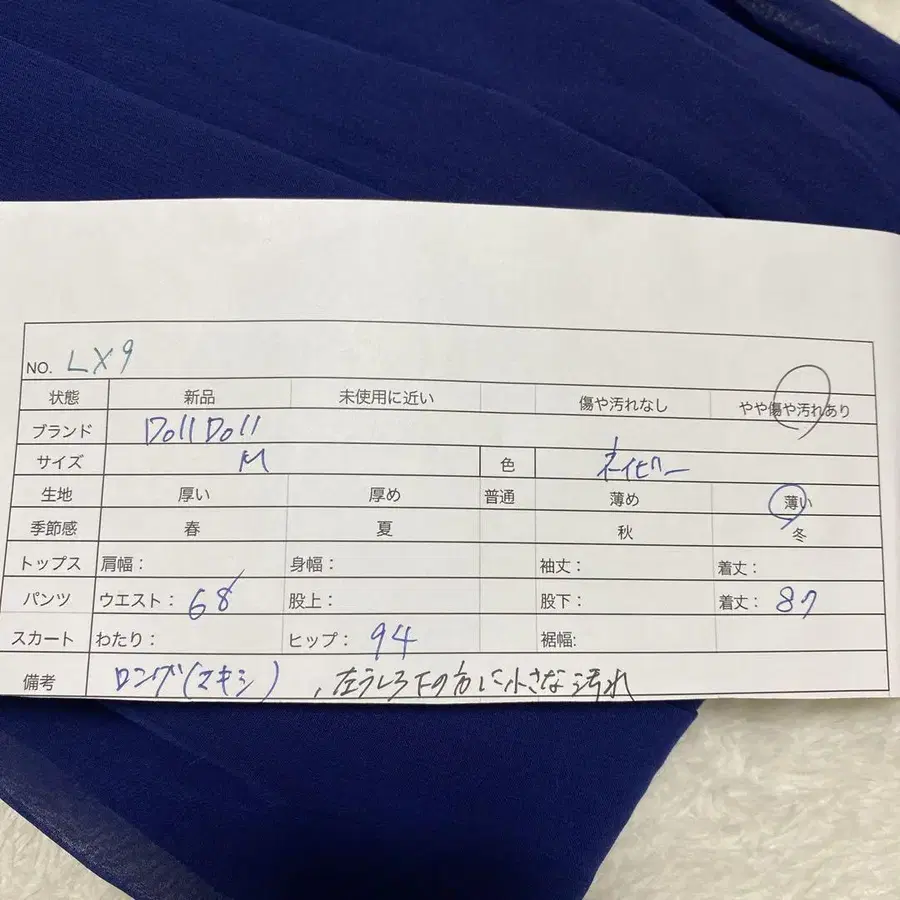 NO. LX9
状態 新品 未使用に近い 傷や汚れなし やや傷や汚れあり
ブランド DollDoll
サイズ M 色 ネイビー
生地 厚い 厚め 普通 薄め 薄い
季節感 春 夏 秋 冬
トップス 肩幅： 身幅： 袖丈： 着丈：
パンツ ウエスト： 68 股上： 股下： 着丈： 87
スカート わたり： ヒップ： 94 裾幅:
備考 ロング(マキシ) ,左うしろ下の方に小さな汚れ